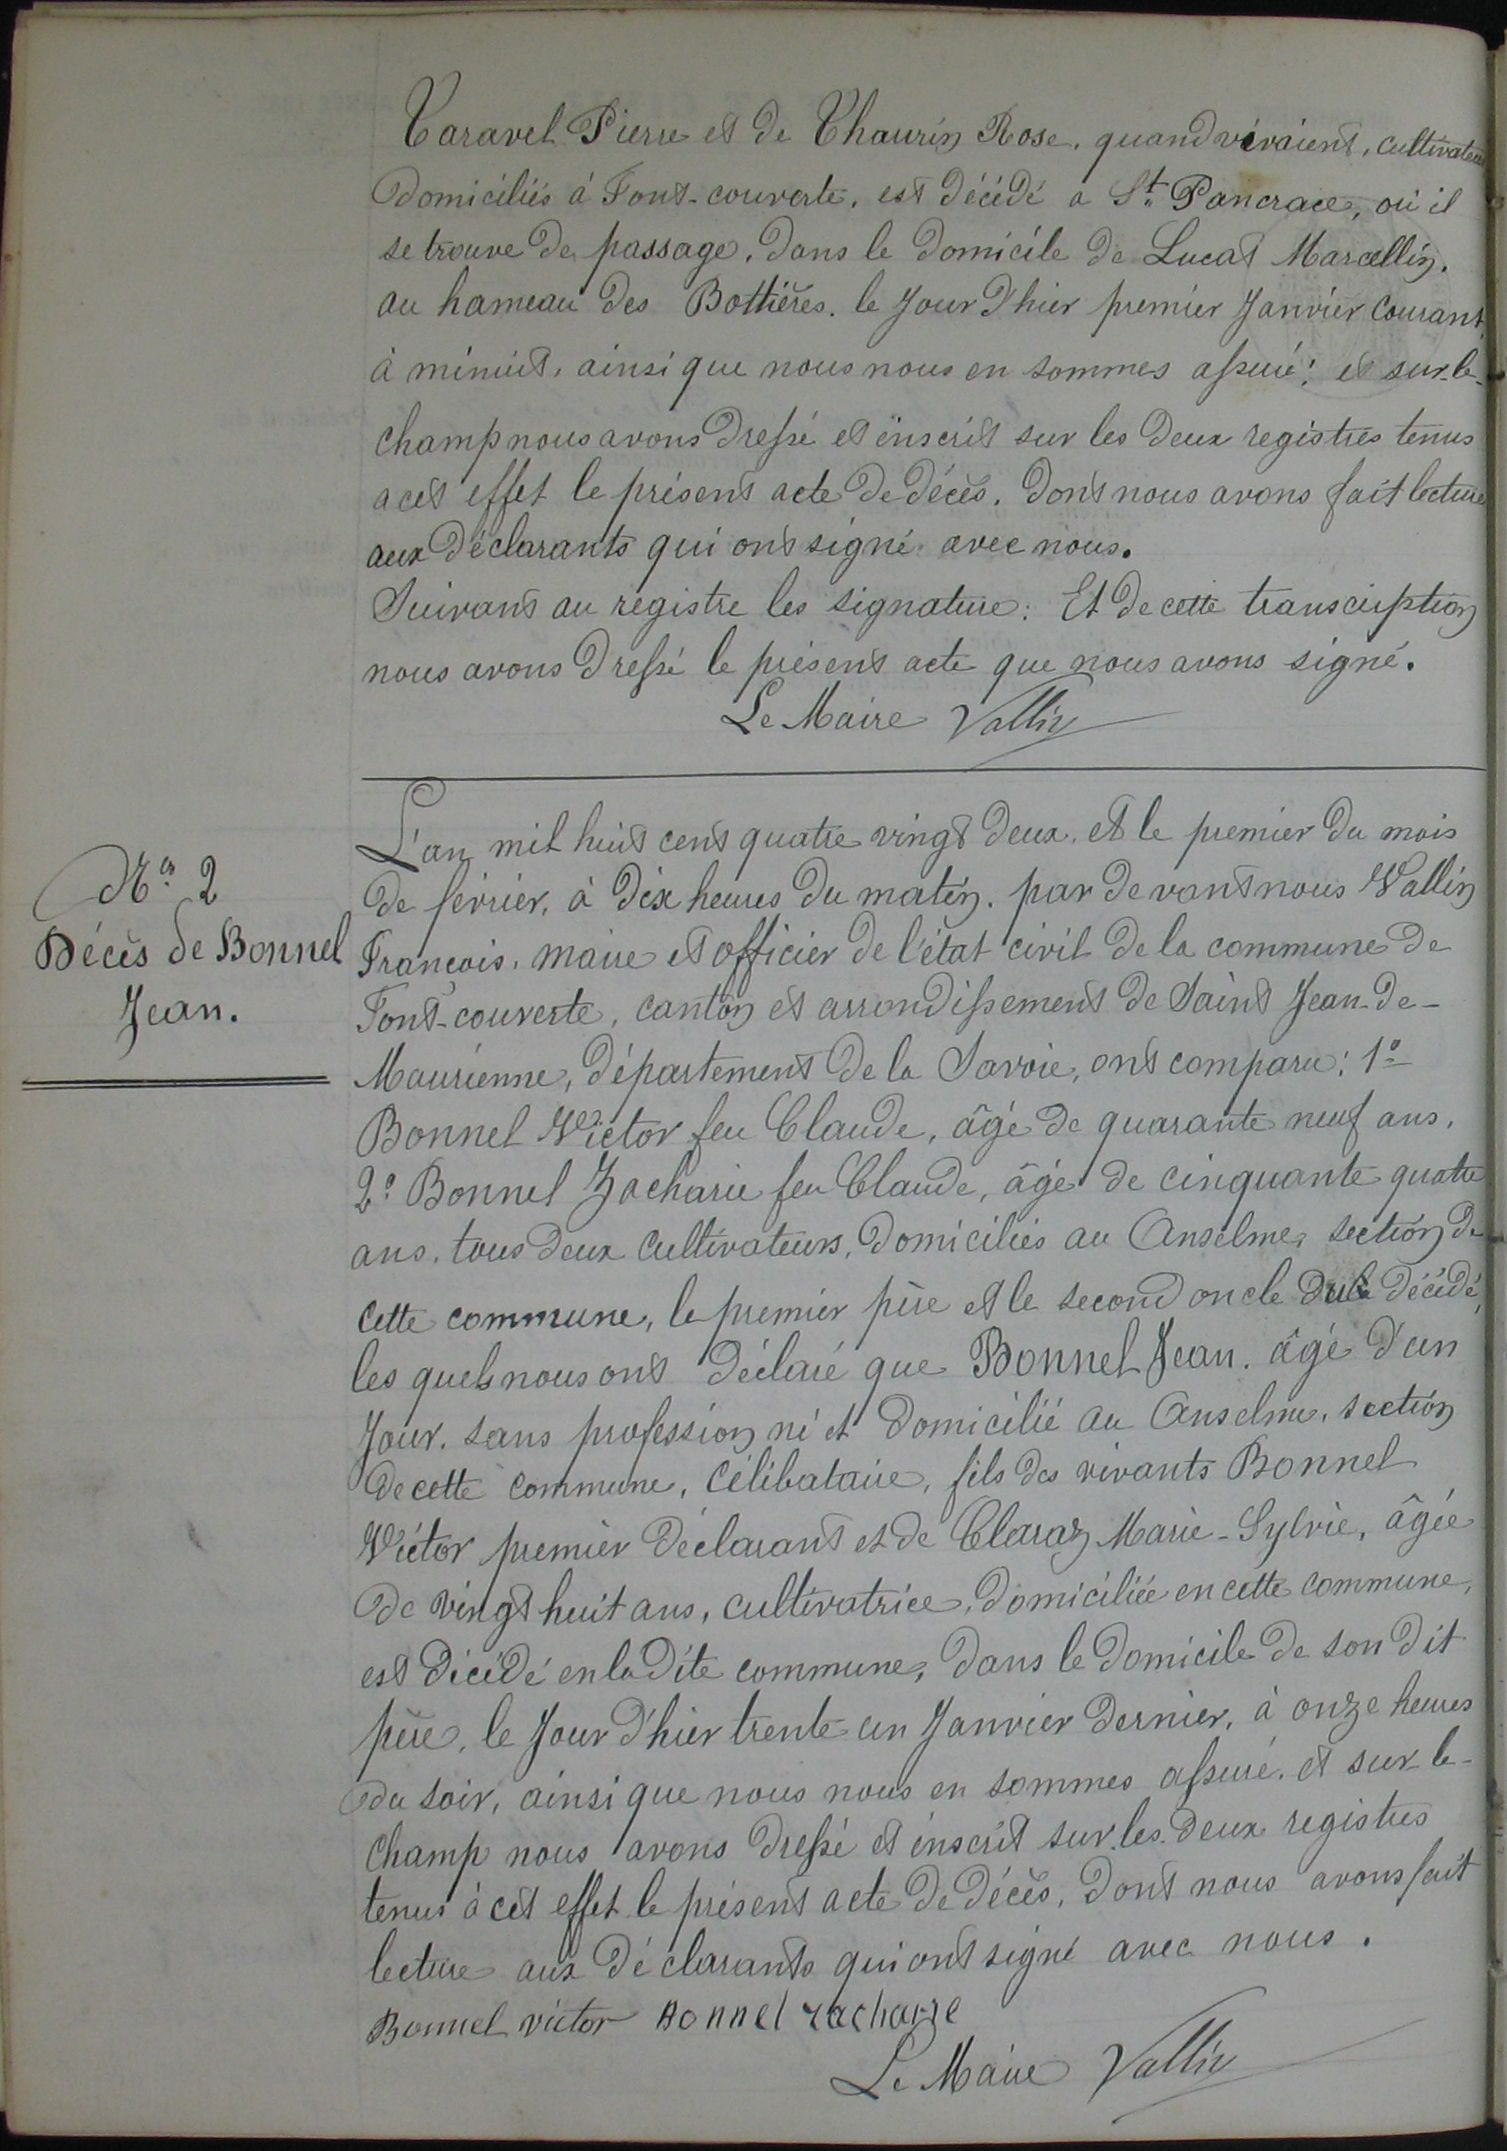 Taravel Pierre et de Thaurin Rose, quand vivaient, cultivateurs
domiciliés à Font-couverte, est décédé a St. Pancrace, où il
se trouve de passage, dans le domicile de Lucat Marcellin,
au hameau des Bottières, le jour d'hier premier Janvier Courant
à minuit, ainsi que nous nous en sommes assuré; et sur-le-
champ nous avons dressé et inscrit sur les deux registres tenus
a cet effet le présent acte de décès, dont nous avons fait lecture
aux déclarants qui ont signé avec nous.
Suivant au registre les signature: Et de cette transcription
nous avons dressé le présent acte que nous avons signé.
Le Maire Vallin
No 2
Décès de Bonnel
Jean.
L'an mil huit cent quatre vingt deux, et le premier du mois
de février, à dix heures du matin, par devant nous Vallin
François, maire et officier de l'état civil de la commune de
Font-couverte, canton et arrondissement de Saint Jean-de-
Maurienne, département de la Savoie, ont comparu: 1º
Bonnel Victor feu Claude, âgé de quarante neuf ans,
2º Bonnel Zacharie feu Claude, âgé de cinquante quatre
ans, tous deux cultivateurs, domiciliés au Anselme, section de
cette commune, le premier père et le second oncle du décédé,
les quels nous ont déclaré que Bonnel Jean, âgé d'un
Jour, sans profession, né et domicilié au Anselme, section
de cette commune, célibataire, fils des vivants Bonnel
Victor premier déclarant et de Claraz Marie-Sylvie, âgée
de vingt huit ans, cultivatrice, domiciliée en cette commune,
est décédé en la dite commune, dans le domicile de son dit
père, le Jour d'hier trente un Janvier dernier, à onze heures
du soir, ainsi que nous nous en sommes assuré, et sur-le-
champ nous avons dressé et inscrit sur les deux registres
tenus à cet effet le présent acte de décès, dont nous avons fait
lecture aux déclarants qui ont signé avec nous.
Bonnel victor Bonnel zacharie
Le Maire Vallin